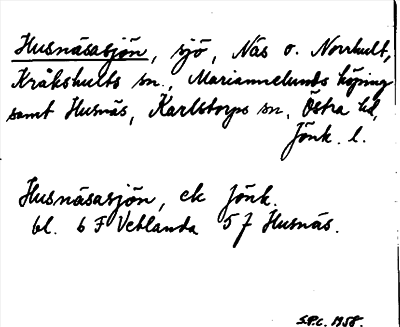 Husnäsasjön, sjö, Näs o. Norrhult,
Kråkshults sn., Mariannelunds köping
samt Husnäs, Karlstorps sn, Östra hd,
Jönk. l.
Husnäsasjön, ek Jönk.
bl. 6 F Vetlanda 5 f Husnäs.
S.P.c. 1958.